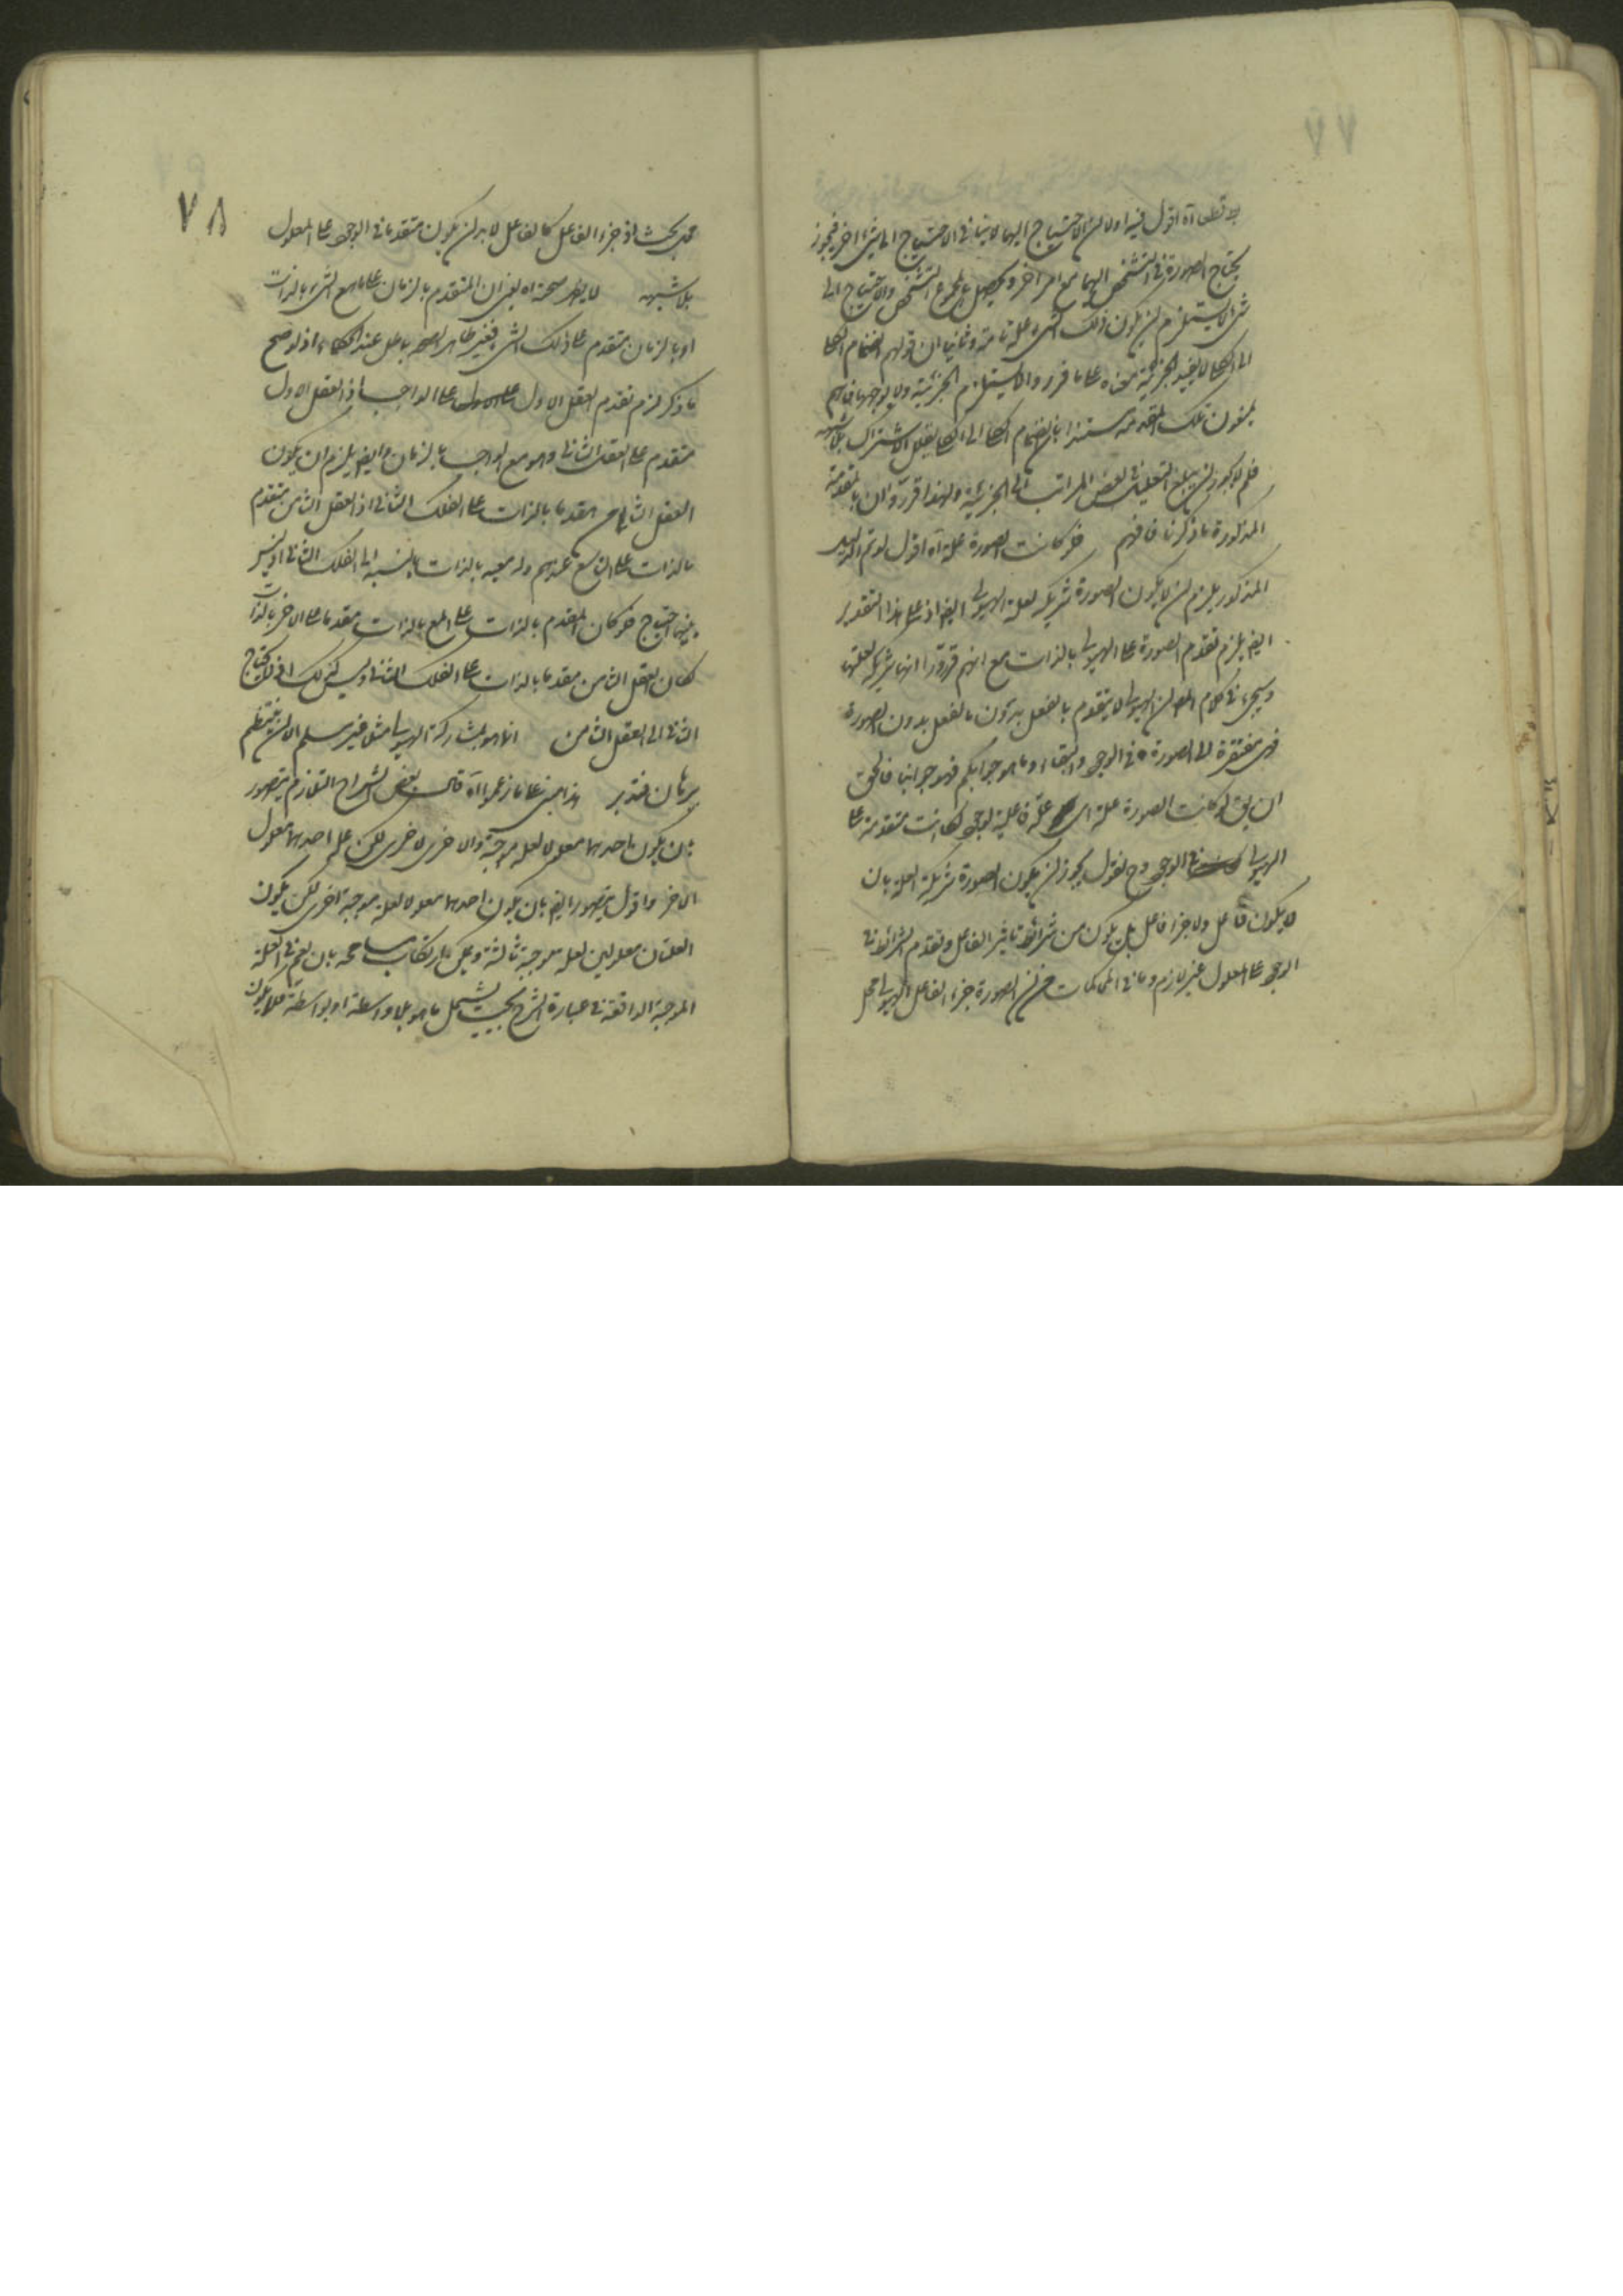 ۷۷
بلا قطى آه اقول فيه اولا ان الاحتياج اليها لا ينافى الاحتياج الى شئ اخر فيجوز
يحتاج الصورة فى التشخص اليها مع امر اخر ويحصل بالمجموع التشخص والاحتياج الى
شئ لا يستلزم ان يكون ذلك الشئ علة تامة وثانيا ان قولهم انضمام الكلى
الى الكلى لا يفيد الجزئية معناه على ما قرر والا يستلزم الجزئية ولا يوجبها فانهم
يمنعون تلك المقدمة مستندا بان انضمام الكلى الى الكلى يقلل الاشتراك بلا شبهه
فلم لا يجوز ان يبلغ التقليل فى بعض المراتب الى الجزئية ولهذا قرروا ان بالمقدمة
المذكورة ما ذكرنا فافهم فلو كانت الصورة علة آه اقول لو تم الدليل
المذكور يلزم ان لا يكون الصورة شريكة لعلة الهيولى ايضا اذ على هذا التقدير
ايضا يلزم تقدم الصورة على الهيولى بالذات مع انهم قرروا انها شريكة لعلتها
وسيجئ فى كلام المص ان الهيولى لا يتقدم بالفعل بدون بالفعل بدون الصورة
فهى مفتقرة الى الصورة فى الوجود والبقاء وما هو جوابكم فهو جوابنا فالحق
ان يق لو كانت الصورة علة اى علة فاعلية لوجود لكانت متقدمة على
الهيولى فى الوجود وح نقول يجوز ان يكون الصورة شريكة العلة بان
لا يكون فاعل ولا جزء فاعل بل يكون من شرائط تاثير الفاعل وتقدم الشرائط فى
الوجود على المعلول غير لازم وما فى المحاكمات من ان الصورة جزء الفاعل الهيولى محل
۷۸
محل بحث اذ جزء الفاعل كالفاعل لا بد ان يكون متقدما فى الوجود على المعلول
بلا شبهه لا يظهر صحته آه يعنى ان المتقدم بالزمان على ما مع الشئ بالذات
او بالزمان متقدم على ذلك الشئ فغير ظاهر الصحة باطل عند الحكماء اذ لو صح
ما ذكر لزم تقدم العقل الاول على الواجب اذ العقل الاول
متقدم على العقل الثانى وهو مع الواجب بالزمان وايضا يلزم ان يكون
العقل الثامن مقدما بالذات على الفلك الثانى اذ العقل الثامن متقدم
بالذات على التاسع عندهم وله معية بالذات بالنسبة الى الفلك الثانى اذ ليس
بينهما احتياج فلو كان المقدم بالذات على المع بالذات مقدما على الاخر بالذات
لكان العقل الثامن مقدما بالذات على الفلك الثانى وليس كذلك اذ لا يحتاج
الثانى الى العقل الثامن انما هو بمشاركة الهيولى مثل فغير مسلم الا ان ينتظم
برهان فتدبر هذا مبنى على ما زعموا آه قال بعض الشراح التلازم يتصور
بان يكون احدهما معلولا لعلة موجبة والاخرى لاخرى لكن علة احدهما معلول
الاخر واقول يتصور ايضا بان يكون احدهما معلولا لعلة موجبة اخرى لكن يكون
العلتان معلولين لعلة موجبة ثالثة ويمكن بارتكاب مسامحه بان يعمم فى العلة
الموجبة الواقعة فى عبارة الشرح بحيث يشمل ما هو بلا واسطة او بواسطة فلا يكون